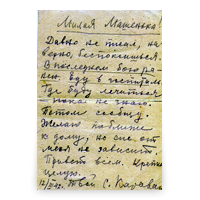 Милая Машенька!
Давно не писал, на
верно, беспокоишься.
В последнем бою ра
нен. Еду в госпиталь
Где буду лечиться
пока не знаю.
Потом сообщу.
Желаю поближе
к дому, но это от
меня не зависит.
Привет всем. Крепко
целую.
Твой С.